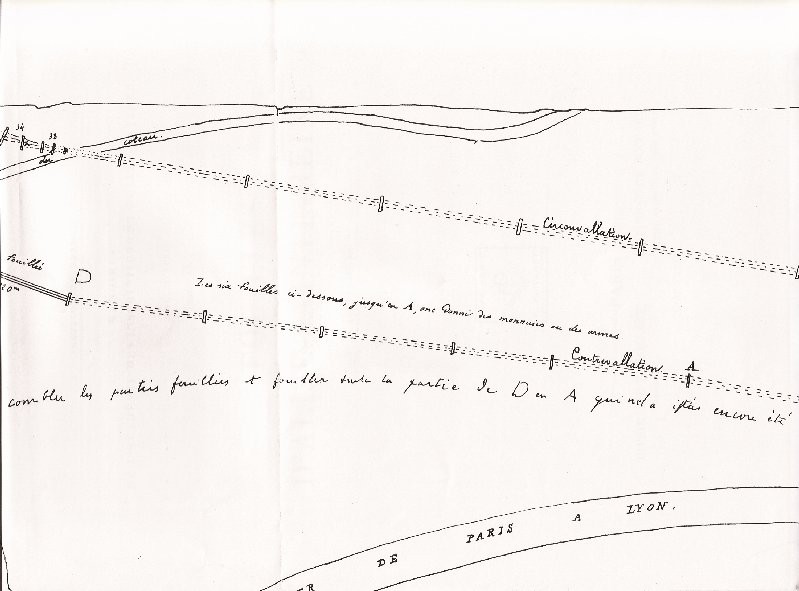 34 33
coteau.
du
Circonvallation.
fouillé
D
10m
Les six fouilles ci-dessous, jusqu'en A, ont donné des monnaies ou des armes
Contrevallation
A
combler les parties fouillées et fouiller toute la partie de D en A qui n'a pas encore été
ER DE PARIS A LYON.